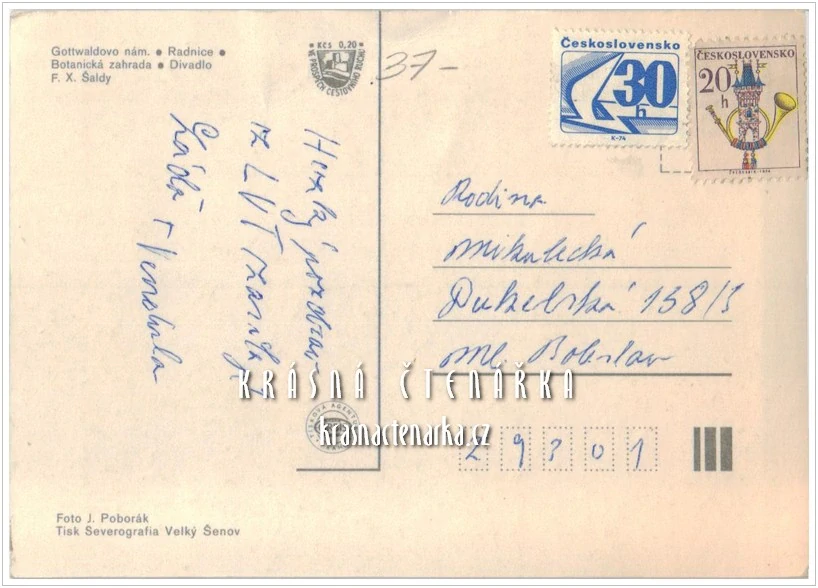 Gottwaldovo nám. • Radnice •
Botanická zahrada • Divadlo
F. X. Šaldy
• Kčs 0,20 •
VE PROSPĚCH CESTOVNÍHO RUCHU
37-
Československo
30
h
K-74
ČESKOSLOVENSKO
20
h
Hezký pozdrav
z LVT zasílají
Láďa + Vendula
Rodina
Mikulecká
Dukelská 138/I
Ml. Boleslav
KRÁSNÁ ČTENÁŘKA
krasnactenarka.cz
29301
Foto J. Poborák
Tisk Severografia Velký Šenov